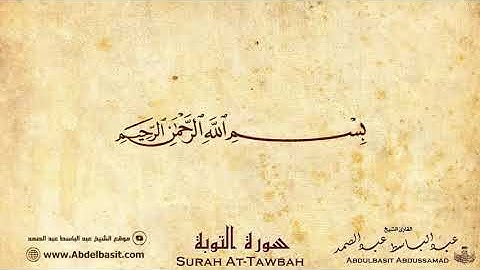 بِسْمِ ٱللَّهِ ٱلرَّحْمَٰنِ ٱلرَّحِيمِ
القارئ الشيخ
عبد الباسط عبد الصمد
ABDULBASIT ABDUSSAMAD
سورة التوبة
SURAH AT-TAWBAH
موقع الشيخ عبد الباسط عبد الصمد
www.Abdelbasit.com